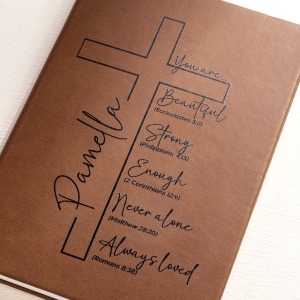 Pamella
You are...
Beautiful
(Ecclesiastes 3:11)
Strong
(Philippians 4:13)
Enough
(2 Corinthians 12:9)
Never alone
(Matthew 28:20)
Always loved
(Romans 8:38)